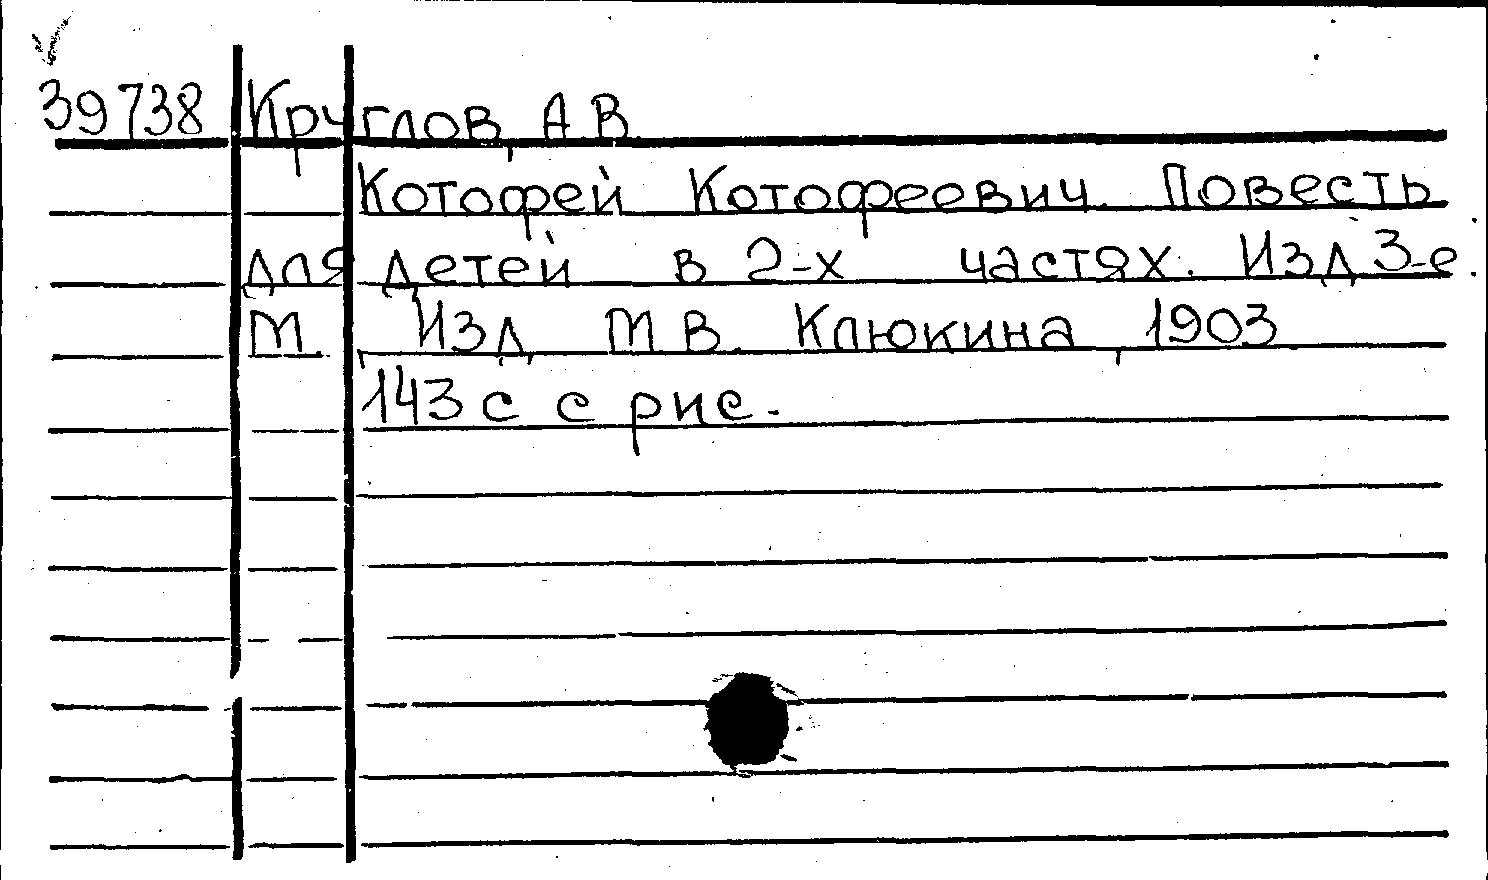 39738 Круглов, А В
Котофей Котофеевич. Повесть
для детей в 2-х частях. Изд 3-е.
М. Изд М В. Клюкина, 1903
143 с с рис.